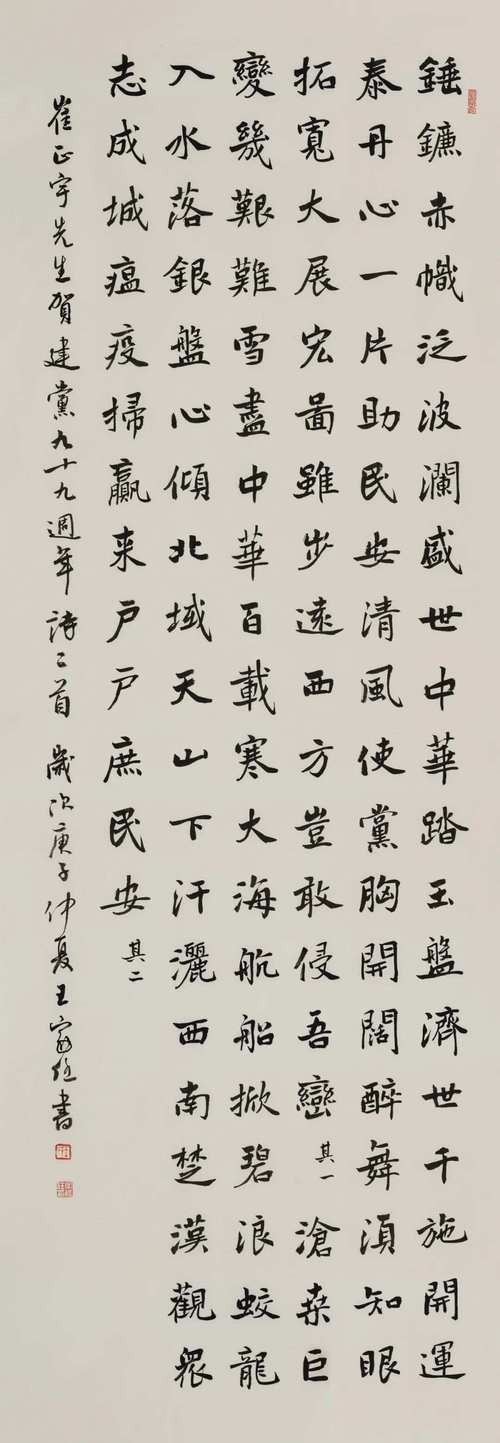 錘鐮赤幟泛波瀾盛世中華踏玉盤濟世千施開運
泰丹心一片助民安清風使黨胸開闊醉舞須知眼
拓寬大展宏啚雖步遠西方豈敢侵吾巒其一滄桒巨
變幾艱難雪盡中華百載寒大海航船掀碧浪蛟龍
入水落銀盤心傾北域天山下汗灑西南楚漠觀衆
志成城瘟疫掃贏来戶戶庶民安其二
崔正宇先生贺建黨九十九週年詩二首歲次庚子仲夏王家書